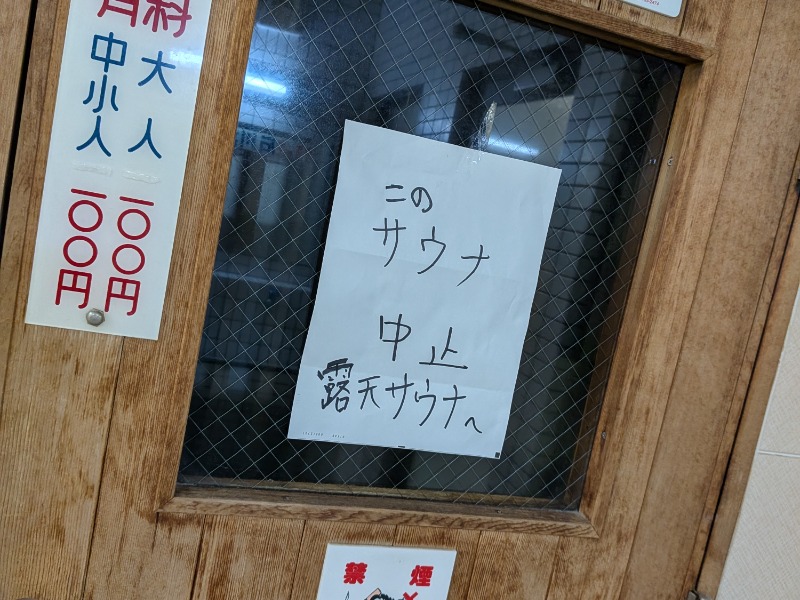 料
大人 一〇〇円
中小人 一〇〇円
この
サウナ
中止
露天サウナへ
禁煙